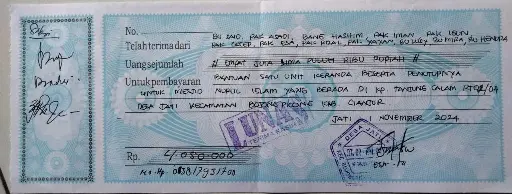 No. BU SAID, PAK ASADI, BANG HASHIM, PAK IMAN PAK
Telah terima dari PAK CECEP, PAK ESA, PAK KOAI, PAK YAYAN, BU WEY BU MIRA BU HENDRA
Uang sejumlah # EMPAT JUTA LIMA PULUH RIBU RUPIAH #
Untuk pembayaran BANTUAN SATU UNIT KERANDA BESERTA PENUTUPNYA
UNTUK MESJID NURUL ISLAM YANG BERADA DI KP TANJUNG SALAM
DESA JATI KECAMATAN BOJONG PICUNG KAB CIANJUR
JATI 1 NOVEMBER 2024
LUNAS
DESA JATI
Rp. 4.050.000